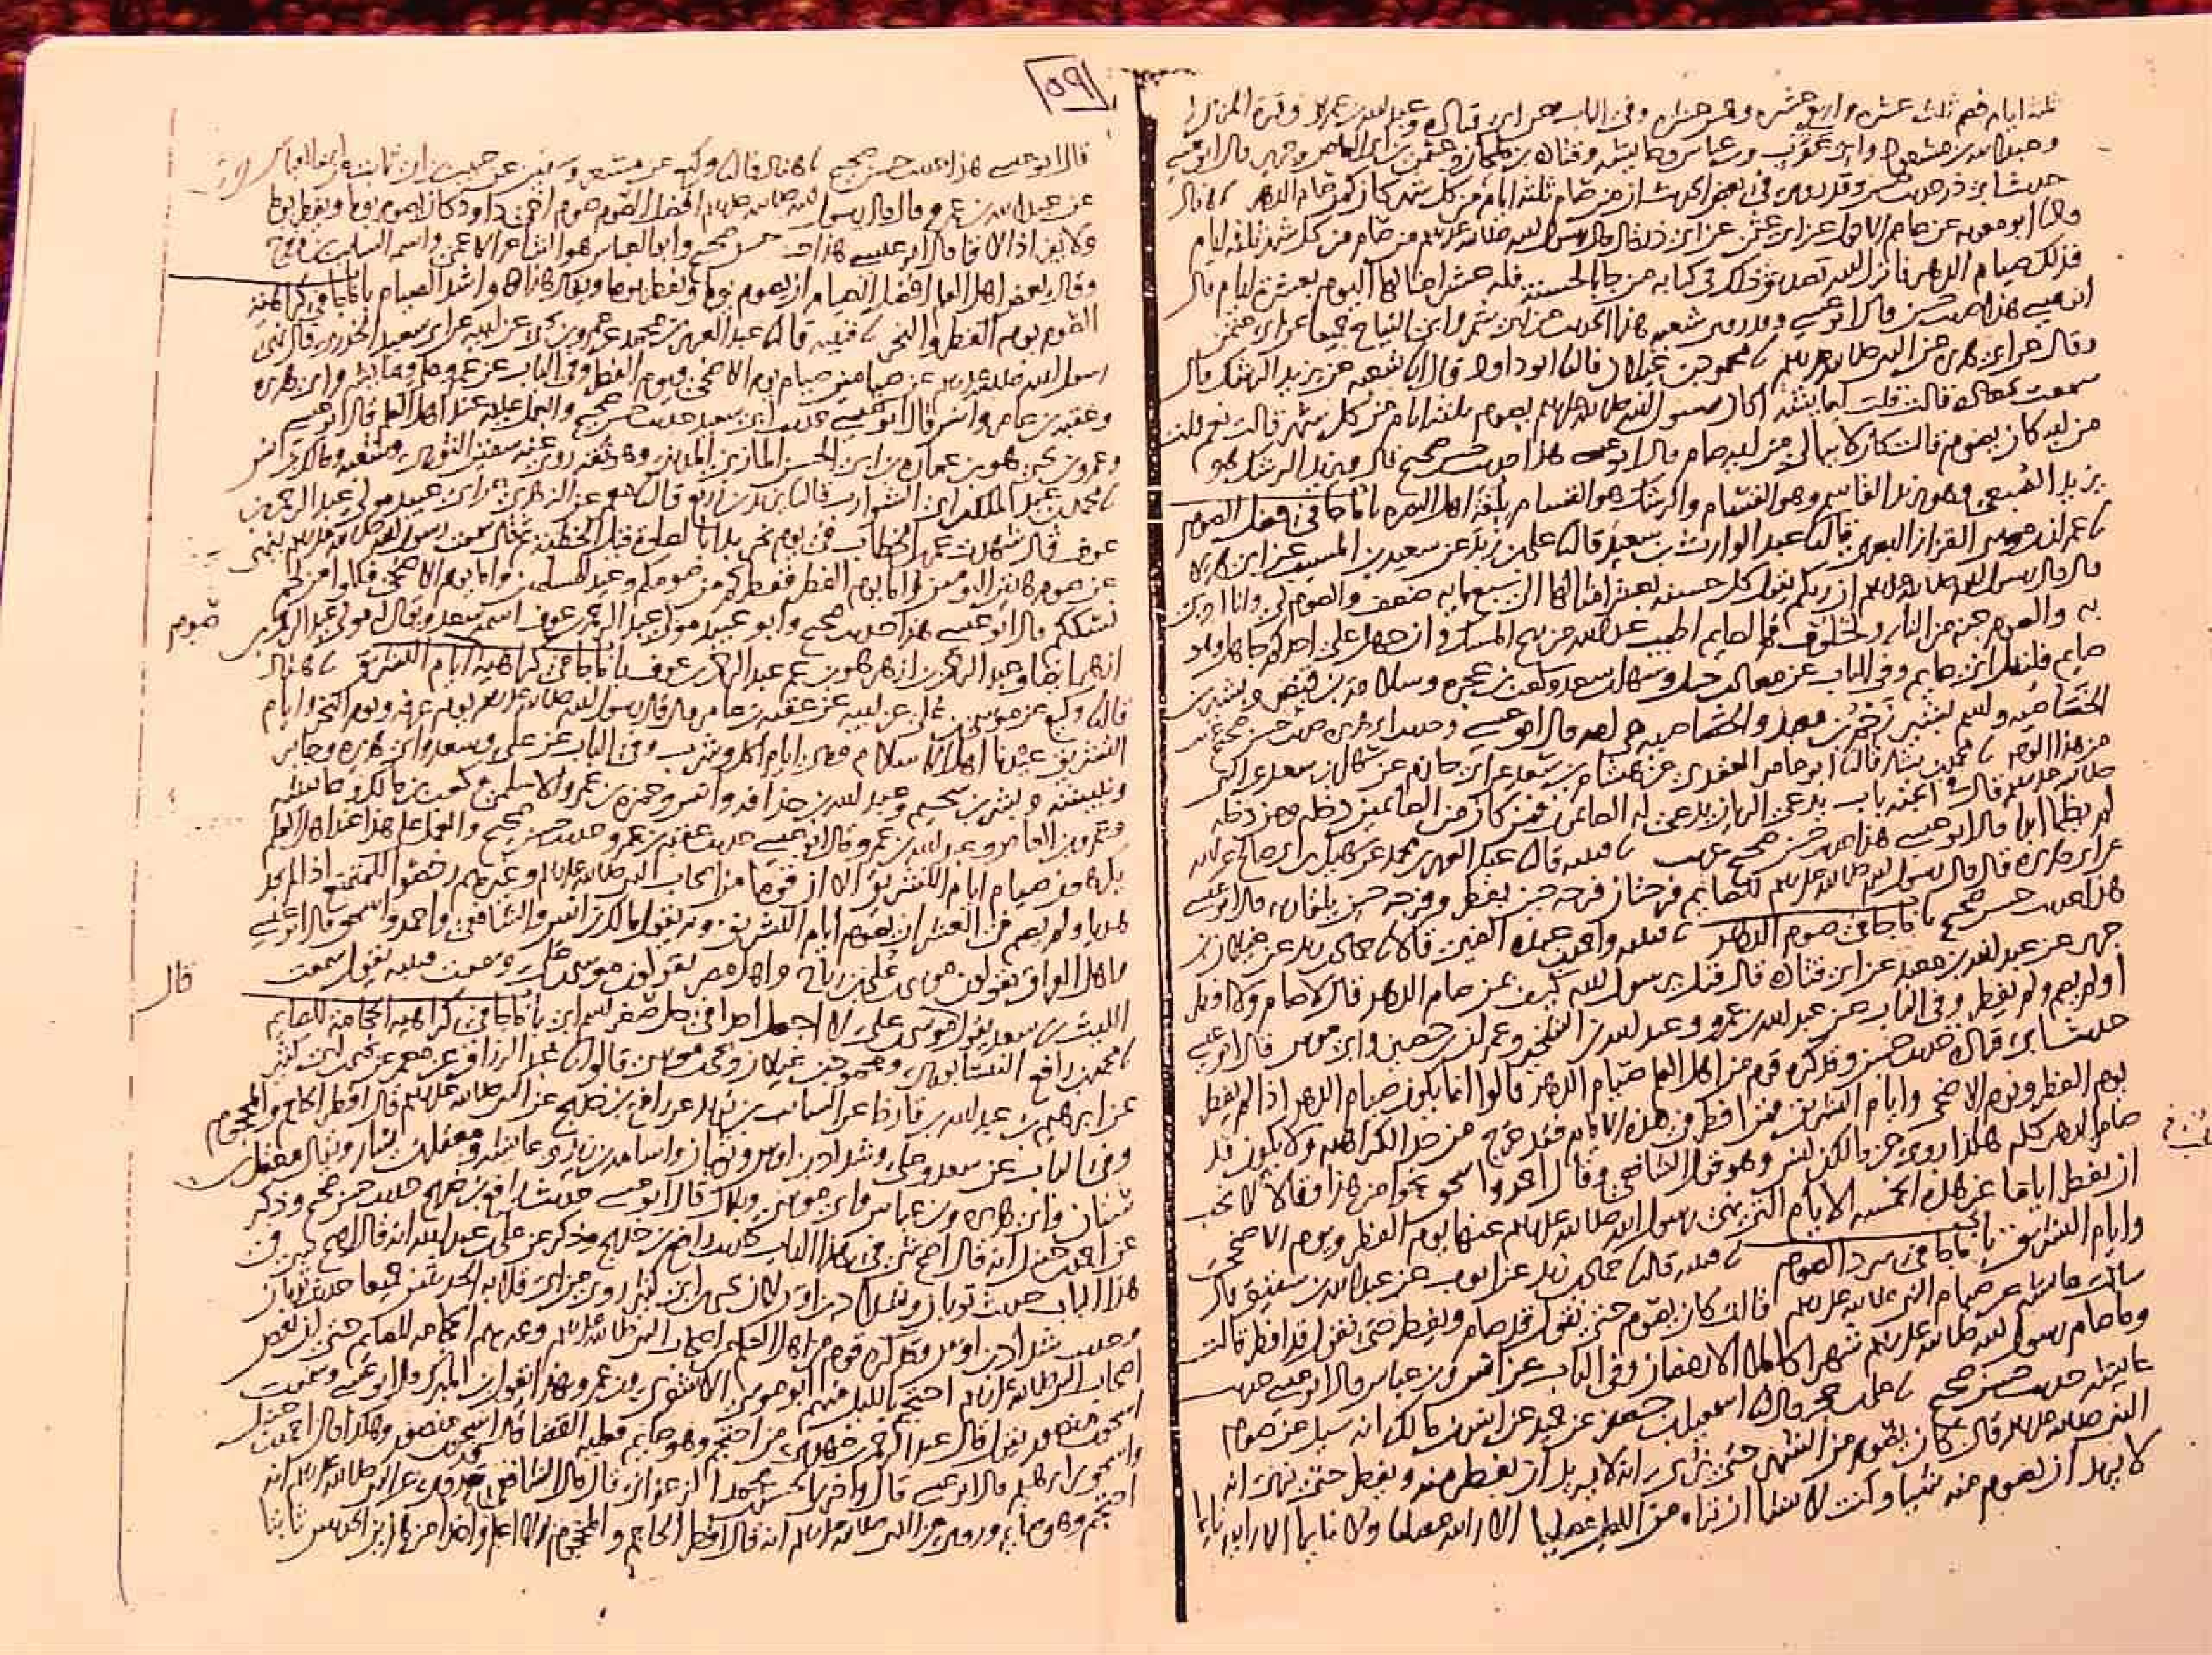 ثلثة ايام فصم ثلث عشرة واربع عشرة وخمس عشرة وفي الباب عن ابي قتادة وعبد الله بن عمرو وقرة المزني
وعبد الله بن مسعود وابي عقرب وبن عباس وعايشة وقتادة بن ملحان وعثمن بن ابي العاص وجرير قال ابو عيسى
حديث ابي ذر حديث حسن وقد روي في بعض الحديث ان من صام ثلثة ايام من كل شهر كان كمن صام الدهر ثنا هناد
ثنا ابو معوية عن عاصم الاحول عن ابي عثمن عن ابي ذر قال قال رسول الله صلى الله عليه وسلم من صام من كل شهر ثلثة ايام
فذلك صيام الدهر فانزل الله تصديق ذلك في كتابه من جا بالحسنة فله عشر امثالها اليوم بعشرة ايام قال
ابو عيسى هذا حديث حسن قال ابو عيسى وقد روى شعبة هذا الحديث عن ابي شمر وابي التياح جميعا عن ابي عثمن
وقال عن ابي هريرة عن النبي صلى الله عليه وسلم ثنا محمود بن غيلان قال ثنا ابو داود قال انا شعبة عن يزيد الرشك قال
سمعت معاذة قالت قلت لعايشة اكان رسول الله صلى الله عليه وسلم يصوم ثلثة ايام من كل شهر قالت نعم قلت
من ايه كان يصوم قالت كان لا يبالي من ايه صام قال ابو عيسى هذا حديث حسن صحيح قال ويزيد الرشك هو
يزيد الضبعي وهو يزيد القاسم وهو القسام والرشك هو القسام بلغة اهل البصرة باب ما جا في فضل الصوم
ثنا عمران بن موسى القزاز البصري قال ثنا عبد الوارث بن سعيد قال ثنا علي بن زيد عن سعيد بن المسيب عن ابي هريرة
قال قال رسول الله صلى الله عليه وسلم ان ربكم يقول كل حسنة بعشر امثالها الى سبعماية ضعف والصوم لي وانا اجزي
به والصوم جنة من النار ولخلوف فم الصايم اطيب عند الله من ريح المسك وان جهل على احدكم جاهل وهو
صايم فليقل اني صايم وفي الباب عن معاذ بن جبل وسهل بن سعد وكعب بن عجرة وسلامة بن قيصر وبشير بن
الخصاصية واسم بشير زحم بن معبد والخصاصية هي امه قال ابو عيسى وحديث ابي هريرة حديث حسن صحيح غريب
من هذا الوجه ثنا محمد بن بشار قال ثنا ابو عامر العقدي عن هشام بن سعد عن ابي حازم عن سهل بن سعد عن النبي
صلى الله عليه وسلم قال في الجنة باب يدعى الريان يدعى له الصايمون فمن كان من الصايمين دخله ومن دخله
لم يظما ابدا قال ابو عيسى هذا حديث حسن صحيح غريب ثنا قتيبة قال ثنا عبد العزيز بن محمد عن سهيل بن ابي صالح عن ابيه
عن ابي هريرة قال قال رسول الله صلى الله عليه وسلم للصايم فرحتان فرحة حين يفطر وفرحة حين يلقا ربه قال ابو عيسى
هذا حديث حسن صحيح باب ما جا في صوم الدهر ثنا قتيبة واحمد بن عبدة الضبي قالا ثنا حماد بن زيد عن غيلان بن
جرير عن عبد الله بن معبد عن ابي قتادة قال قيل يرسول الله كيف بمن صام الدهر قال لا صام ولا افطر
او لم يصم ولم يفطر وفي الباب عن عبد الله بن عمرو وعبد الله بن الشخير وعمران بن حصين وابي موسى قال ابو عيسى
حديث ابي قتادة حديث حسن وقد كره قوم من اهل العلم صيام الدهر قالوا انما يكون صيام الدهر اذا لم يفطر
يوم الفطر ويوم الاضحى وايام التشريق فمن افطر في هذه الايام فقد خرج من حد الكراهية ولا يكون قد
صام الدهر كله هكذا روي عن مالك بن انس وهو قول الشافعي وقال احمد واسحق نحوا من هذا وقالا لا يجب
ان يفطر اياما غير هذه الخمسة الايام التي نهى رسول الله صلى الله عليه وسلم عنها يوم الفطر ويوم الاضحى
وايام التشريق باب ما جا في سرد الصوم ثنا قتيبة قال ثنا حماد بن زيد عن ايوب عن عبد الله بن شقيق قال
سالت عايشة عن صيام النبي صلى الله عليه وسلم قالت كان يصوم حتى نقول قد صام ويفطر حتى نقول قد افطر قالت
وما صام رسول الله صلى الله عليه وسلم شهرا كاملا الا رمضان وفي الباب عن انس وبن عباس قال ابو عيسى حديث
عايشة حديث حسن صحيح ثنا علي بن حجر قال ثنا اسمعيل بن جعفر عن حميد عن انس بن مالك انه سيل عن صوم
النبي صلى الله عليه وسلم قال كان يصوم من الشهر حتى نرى انه لا يريد ان يفطر منه ويفطر حتى نرى انه
لا يريد ان يصوم منه شيا وكنت لا تشا ان تراه من الليل مصليا الا رايته مصليا ولا نايما الا رايته نايما
٥٩
قال ابو عيسى هذا حديث حسن صحيح ثنا هناد قال ثنا وكيع عن مسعر وسفين عن حبيب بن ابي ثابت عن ابي العباس
عن عبد الله بن عمرو قال قال رسول الله صلى الله عليه وسلم افضل الصوم صوم اخي داود كان يصوم يوما ويفطر يوما
ولا يفر اذا لاقا قال ابو عيسى هذا حديث حسن صحيح وابو العباس هو الشاعر الاعمى واسمه السايب بن فروخ
وقال بعض اهل العلم افضل الصيام ان يصوم يوما ويفطر يوما ويقال هذا هو اشد الصيام باب ما جا في كراهية
الصوم يوم الفطر والنحر ثنا قتيبة قال ثنا عبد العزيز بن محمد عن عمرو بن يحيى عن ابيه عن ابي سعيد الخدري قال نهى
رسول الله صلى الله عليه وسلم عن صيامين صيام يوم الاضحى ويوم الفطر وفي الباب عن عمر وعلي وعايشة وابي هريرة
وعقبة بن عامر وانس قال ابو عيسى حديث ابي سعيد حديث حسن صحيح والعمل عليه عند اهل العلم قال ابو عيسى
وعمرو بن يحيى هو بن عمارة بن ابي الحسن المازني المديني وهو ثقة روى عنه سفين الثوري وشعبة ومالك بن انس
ثنا محمد بن عبد الملك بن ابي الشوارب قال ثنا يزيد بن زريع قال ثنا معمر عن الزهري عن ابي عبيد مولى عبد الرحمن بن
عوف قال شهدت عمر بن الخطاب في يوم نحر بدا بالصلوة قبل الخطبة ثم قال سمعت رسول الله صلى الله عليه وسلم ينهى
عن صوم هاذين اليومين اما يوم الفطر ففطركم من صومكم وعيد للمسلمين واما يوم الاضحى فكلوا من لحم
نسككم قال ابو عيسى هذا حديث صحيح وابو عبيد مولى عبد الرحمن بن عوف اسمه سعد ويقال له مولى عبد الرحمن بن
صوم
ازهر ايضا وعبد الرحمن بن ازهر هو بن عم عبد الرحمن بن عوف باب ما جا في كراهية ايام التشريق ثنا هناد
قال ثنا وكيع عن موسى بن علي عن ابيه عن عقبة بن عامر قال قال رسول الله صلى الله عليه وسلم يوم عرفة ويوم النحر وايام
التشريق عيدنا اهل الاسلام وهي ايام اكل وشرب وفي الباب عن علي وسعد وابي هريرة وجابر
ونبيشة وبشر بن سحيم وعبد الله بن حذافة وانس وحمزة بن عمرو الاسلمي وكعب بن مالك وعايشة
وعمرو بن العاص وعبد الله بن عمرو قال ابو عيسى حديث عقبة بن عامر حديث حسن صحيح والعمل على هذا عند اهل العلم
يكرهون صيام ايام التشريق الا ان قوما من اصحاب النبي صلى الله عليه وسلم وغيرهم رخصوا للمتمتع اذا لم يجد
هديا ولم يصم في العشر ان يصوم ايام التشريق وبه يقول مالك بن انس والشافعي واحمد واسحق قال ابو عيسى
واهل العراق يقولون موسى بن علي بن رباح واهل مصر يقولون موسى بن علي وسمعت قتيبة يقول سمعت
قال
الليث بن سعد يقول قال موسى بن علي لا اجعل احدا في حل صغر اسم ابي باب ما جا في كراهية الحجامة للصايم
ثنا محمد بن رافع النيسابوري ومحمود بن غيلان ويحيى بن موسى قالوا ثنا عبد الرزاق عن معمر عن يحيى بن ابي كثير
عن ابرهيم بن عبد الله بن قارظ عن السايب بن يزيد عن رافع بن خديج عن النبي صلى الله عليه وسلم قال افطر الحاجم والمحجوم
وفي الباب عن سعد وعلي وشداد بن اوس وثوبان واسامة بن زيد وعايشة ومعقل بن يسار ويقال معقل بن
سنان وابي هريرة وبن عباس وابي موسى وبلال قال ابو عيسى حديث رافع بن خديج حديث حسن صحيح وذكر
عن احمد بن حنبل انه قال اصح شي في هذا الباب حديث رافع بن خديج وذكر عن علي بن عبد الله انه قال اصح شي في
هذا الباب حديث ثوبان وشداد بن اوس لان يحيى بن ابي كثير روى عن ابي قلابة الحديثين جميعا حديث ثوبان
وحديث شداد بن اوس وقد كره قوم من اهل العلم من اصحاب النبي صلى الله عليه وسلم وغيرهم الحجامة للصايم حتى ان بعض
اصحاب النبي صلى الله عليه وسلم احتجم بالليل منهم ابو موسى الاشعري وبن عمر وبهذا يقول بن المبارك قال ابو عيسى وسمعت
اسحق بن منصور يقول قال عبد الرحمن بن مهدي من احتجم وهو صايم فعليه القضا قال اسحق بن منصور وهكذا قال احمد بن حنبل
واسحق بن ابرهيم قال ابو عيسى قال واخبرني الحسن بن محمد الزعفراني قال قال الشافعي قد روي عن النبي صلى الله عليه وسلم انه
احتجم وهو صايم وروي عن النبي صلى الله عليه وسلم انه قال افطر الحاجم والمحجوم ولا اعلم واحدا من هاذين الحديثين ثابتا